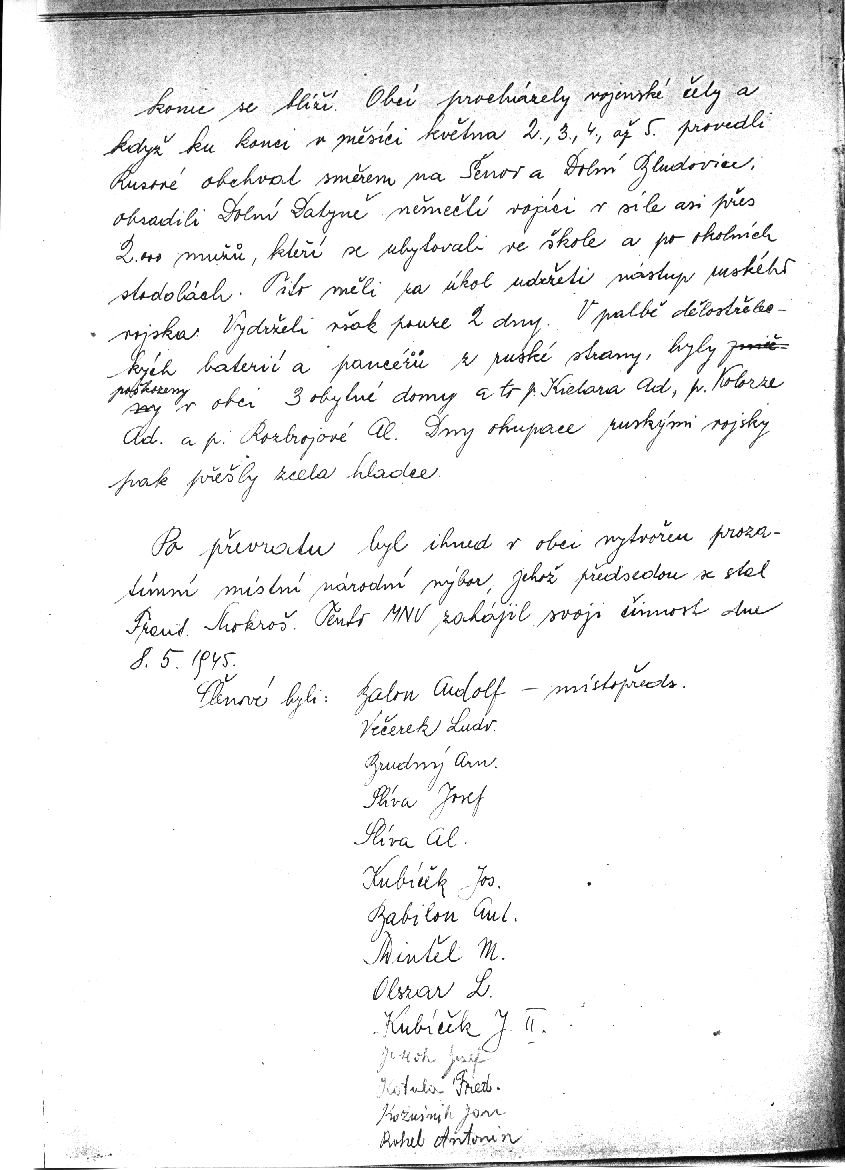 konec se blíží. Obcí procházely vojenské čely a
když ku konci v měsíci května 2., 3., 4., až 5. provedli
Rusové obchvat směrem na Šenov a Dolní Bludovice,
obsadili Dolní Datyně němečtí vojíci v síle asi přes
2.000 mužů, kteří se ubytovali ve škole a po okolních
stodolách. Tito měli za úkol udržeti nástup ruského
vojska. Vydrželi však pouze 2 dny. V palbě dělostřele-
kých baterií a pancéřů z ruské strany, byly zniče-
poškozeny
ny v obci 3 obytné domy a to p. Kielara Ad, p. Kolorze
Ad. a p. Rozbrojové Al. Dny okupace ruskými vojsky
pak přešly zcela hladce.
Po převratu byl ihned v obci vytvořen proza-
tímní místní národní výbor, jehož předsedou se stal
Frant. Mokroš. Tento MNV zahájil svoji činnost dne
8. 5. 1945.
Členové byli: Balon Rudolf – místopředs.
Večerek Ludv.
Brudný Arn.
Slíva Josef
Slíva Al.
Kubíček Jos.
Babilon Ant.
Mintěl M.
Olszar L.
Kubíček J. II.
Josef
Kotula Fried.
Kožušník Jan
Rohel Antonín